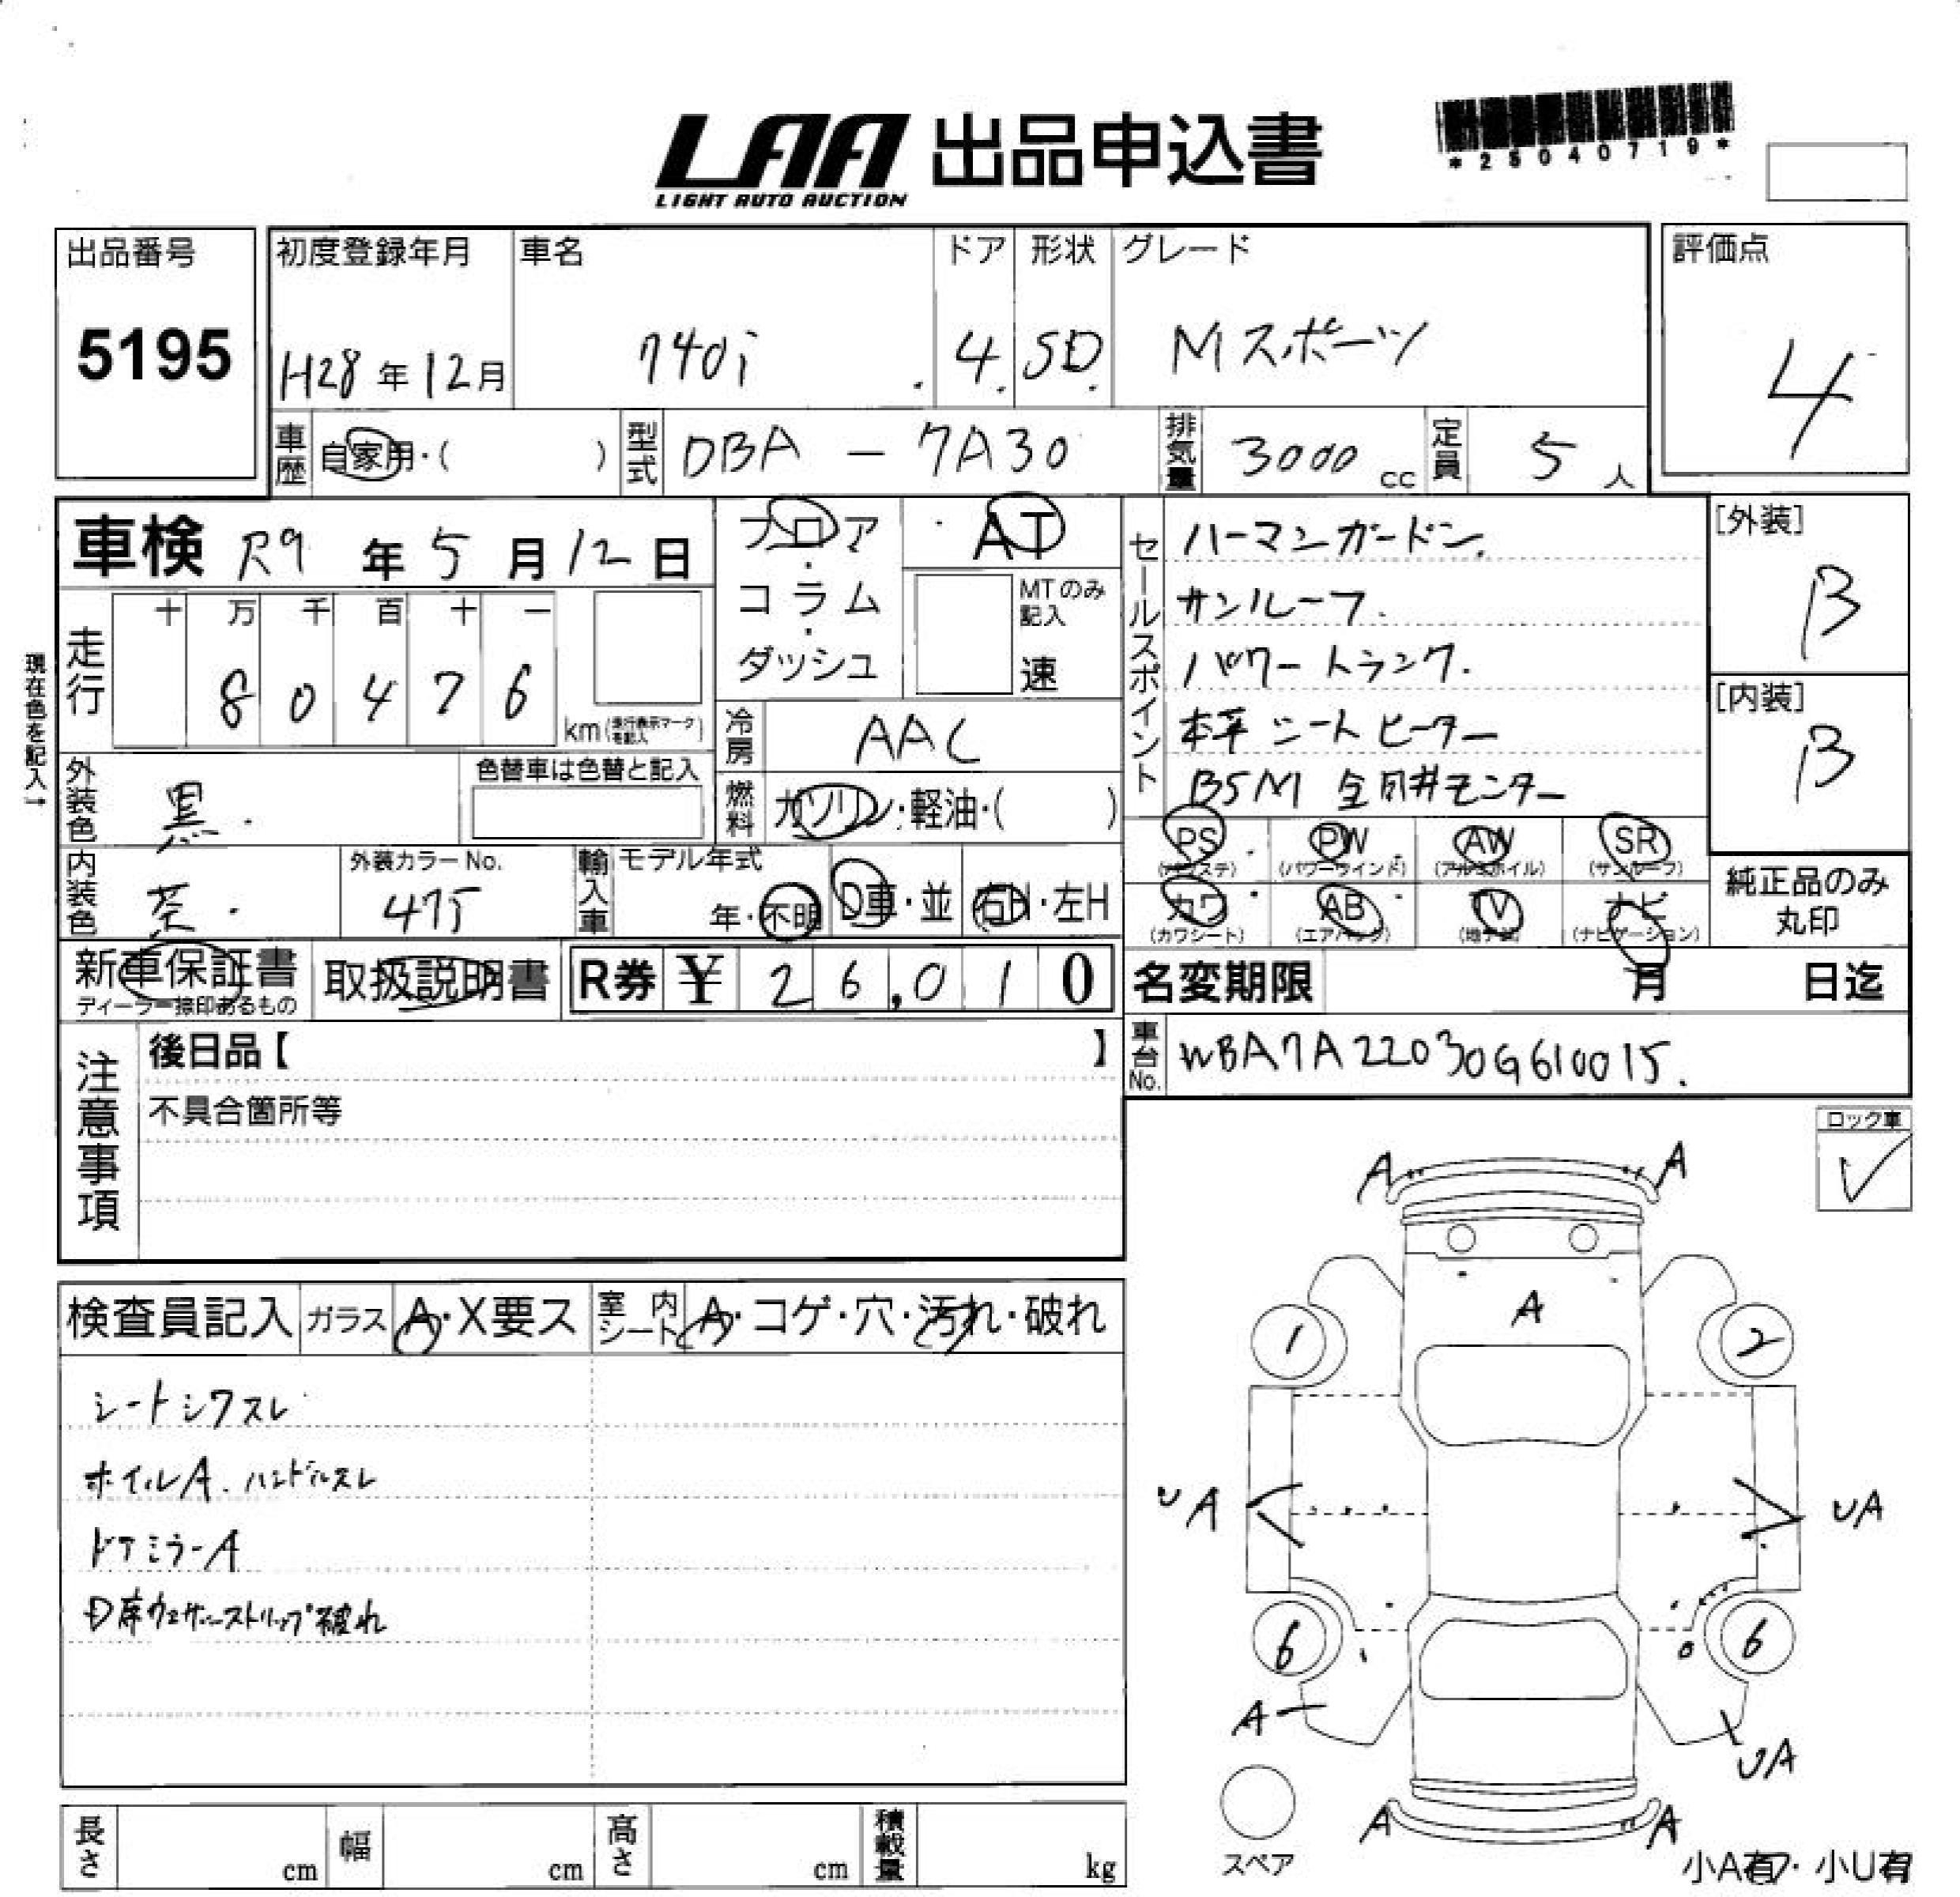 LAA 出品申込書
LIGHT AUTO AUCTION
*25040719*
出品番号 初度登録年月 車名 ドア 形状 グレード 評価点
5195 H28年12月 740i 4 SD Mスポーツ 4
車歴 自家用・( ) 型式 DBA-7A30 排気量 3000cc 定員 5人
車検 R9年5月12日
フロア・コラム・ダッシュ
AT
MTのみ記入
速
現在色を記入→
走行 十 万 千 百 十 一
8 0 4 7 6 km(走行表示マークを記入)
冷房 AAC
燃料 ガソリン・軽油・( )
外装色 黒
色替車は色替と記入
内装色 茶
外装カラーNo. 475
輸入車 モデル年式 年・不明 D車・並 右H・左H
セールスポイント
ハーマンガードン
サンルーフ
パワートランク
本革シートヒーター
BSM 全周井モニター
[外装] B
[内装] B
PS PW AW SR
(パワステ) (パワーウインド) (アルミホイル) (サンルーフ)
カワ AB TV ナビ
(カワシート) (エアバック) (地デジ) (ナビゲーション)
純正品のみ丸印
新車保証書
ディーラー捺印あるもの
取扱説明書
R券 ¥ 26,010
名変期限 月 日迄
車台No. WBA7A22030G610015
注意事項
後日品【 】
不具合箇所等
ロック車
✓
検査員記入 ガラス A・X要ス 室内シート A・コゲ・穴・汚れ・破れ
シートシワスレ
ホイルA. ハンドルスレ
ドアミラーA
D席ウェザーストリップ破れ
A A
A
1 2
UA UA
6 6
A UA
A A
スペア
小A有・小U有
長さ cm 幅 cm 高さ cm 積載量 kg